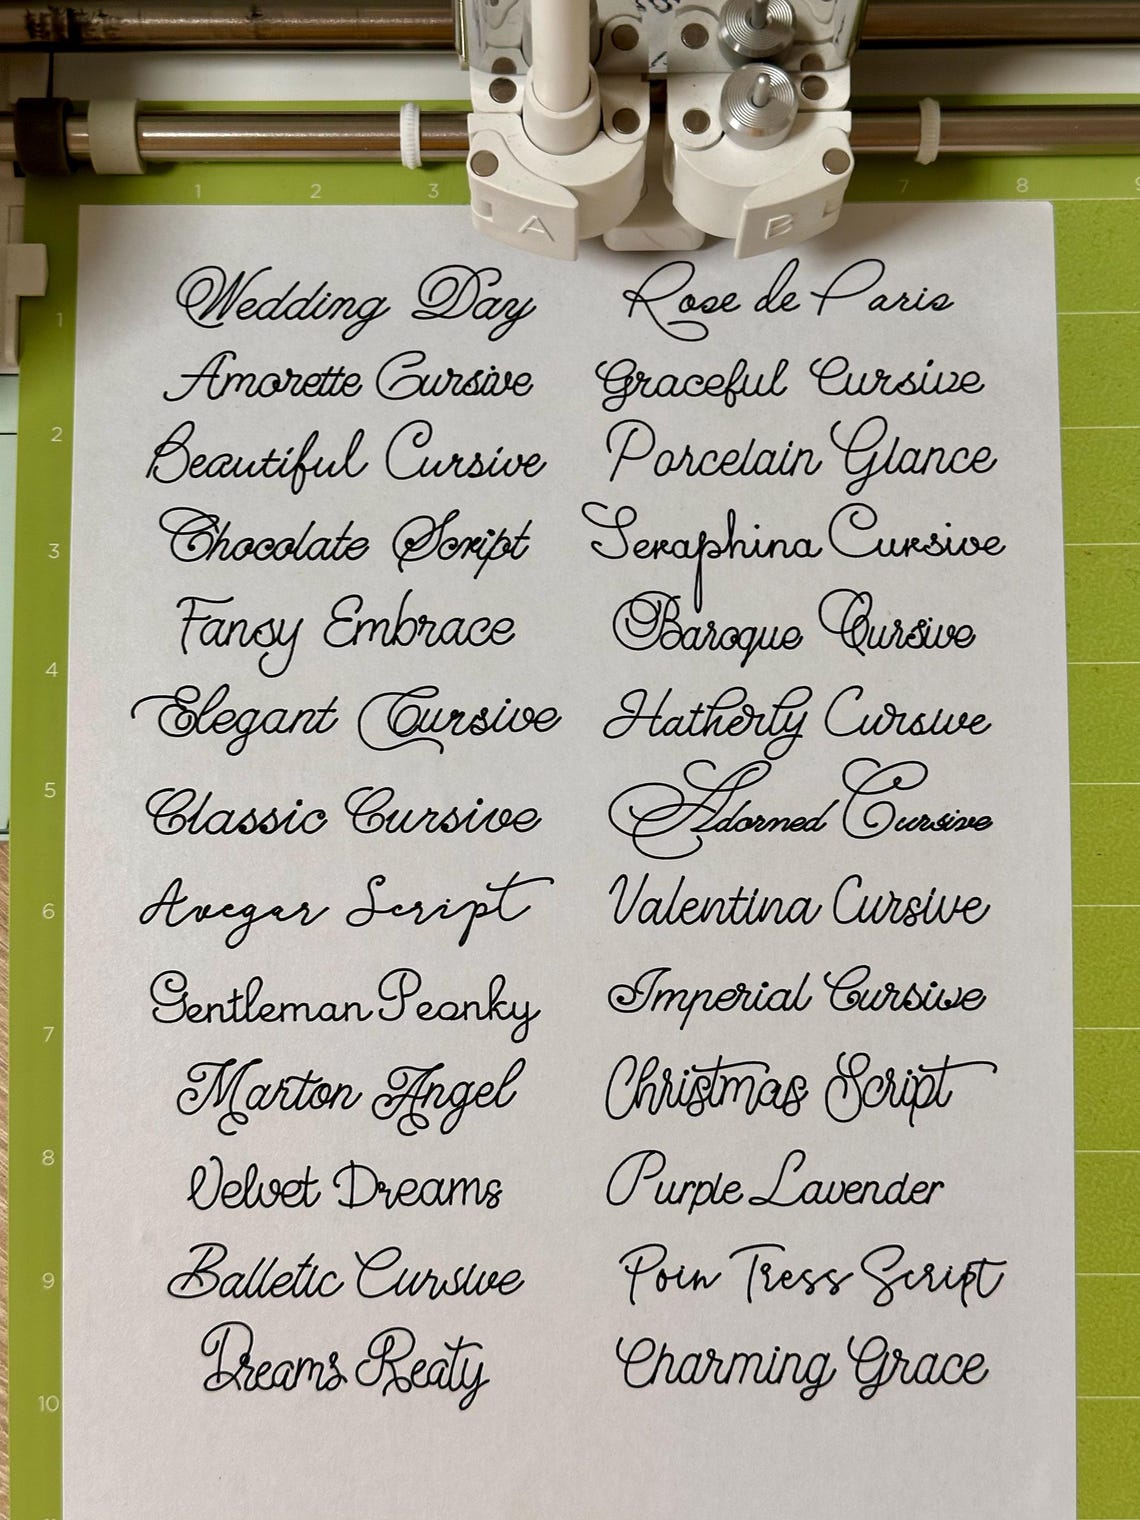 A B
1 2 3 7 8 9
Wedding Day
Rose de Paris
1
Amorette Cursive
Graceful Cursive
2
Beautiful Cursive
Porcelain Glance
3
Chocolate Script
Seraphina Cursive
Fancy Embrace
Baroque Cursive
4
Elegant Cursive
Hatherly Cursive
5
Classic Cursive
Adorned Cursive
6
Avegar Script
Valentina Cursive
Gentleman Peonky
Imperial Cursive
7
Marton Angel
Christmas Script
8
Velvet Dreams
Purple Lavender
9
Balletic Cursive
Poin Tress Script
Dreams Reaty
Charming Grace
10